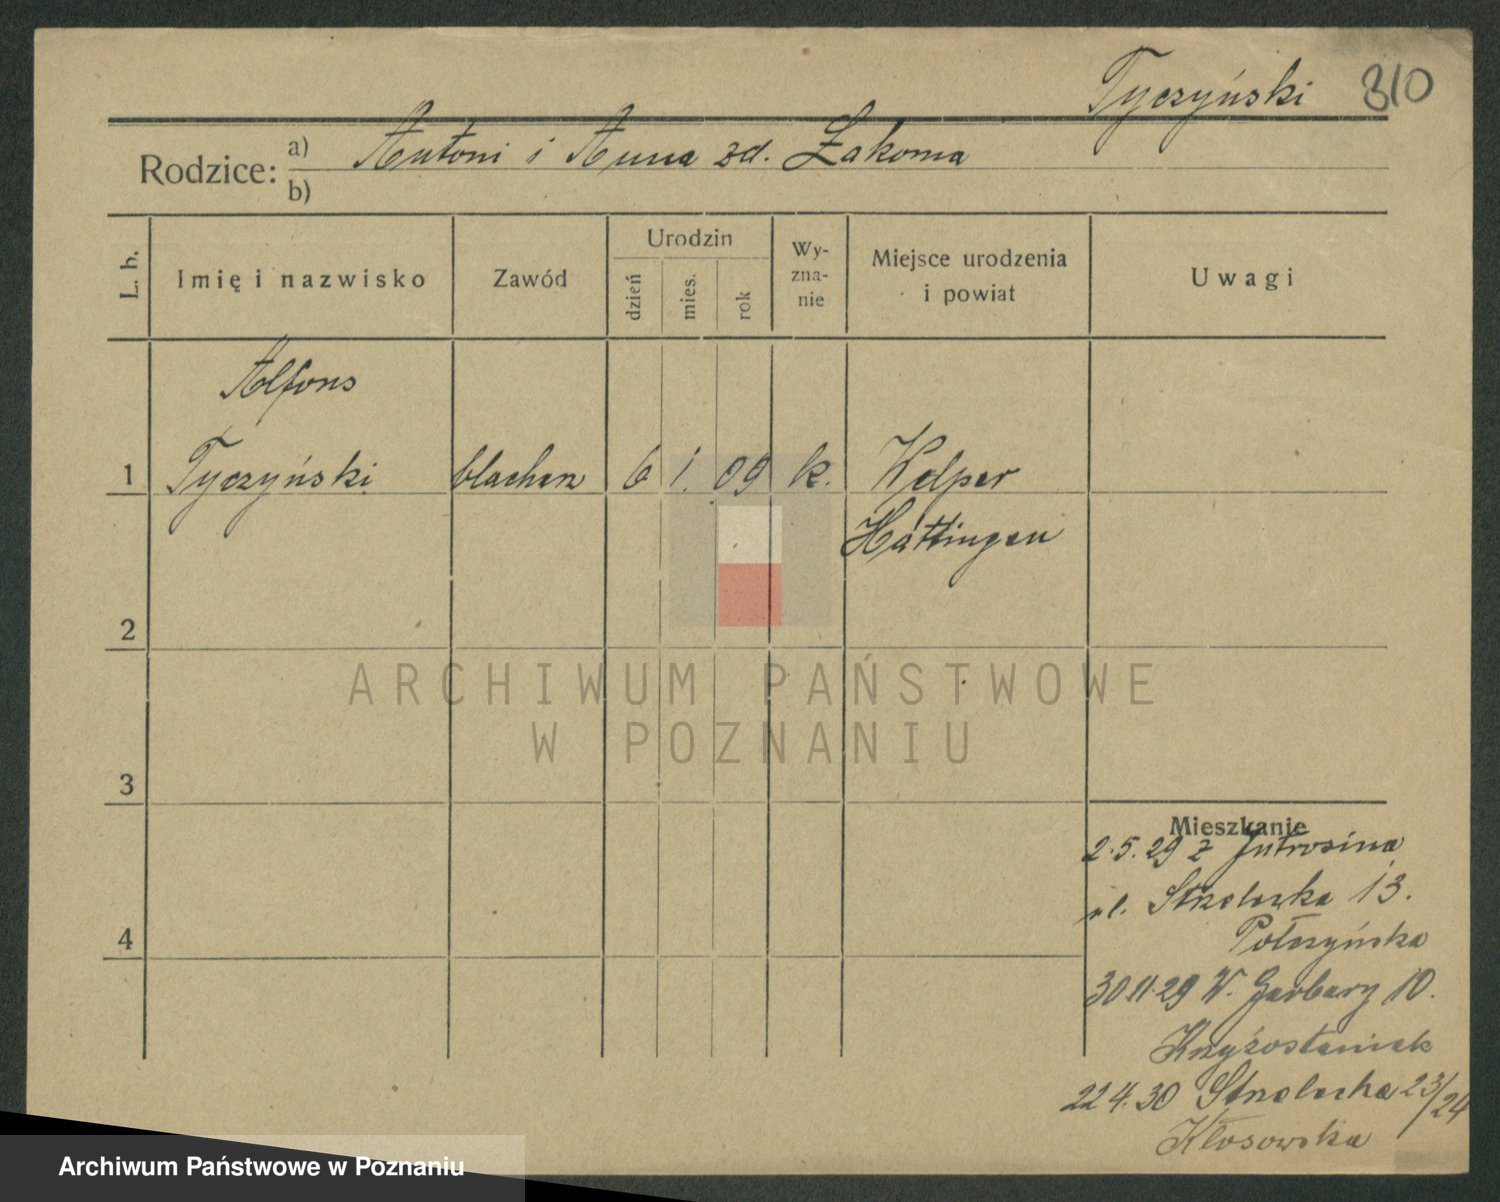 Tyczyński 310
Rodzice: a) Antoni i Anna zd. Żakoma
b)
L. b. Imię i nazwisko Zawód Urodzin dzień mies. rok Wy-zna-nie Miejsce urodzenia i powiat Uwagi
Alfons
1 Tyczyński blacharz 6 1. 09 k. Welper
Hattingen
2
3
4
Mieszkanie
2.5.29 z Jutrosina
ul. Strzelecka 13.
30.11.29 W. Garbary 10.
Krzyżostaniak
22 4. 30 Strzelecka 23/24
Kłosowska
ARCHIWUM PAŃSTWOWE
W POZNANIU
Archiwum Państwowe w Poznaniu